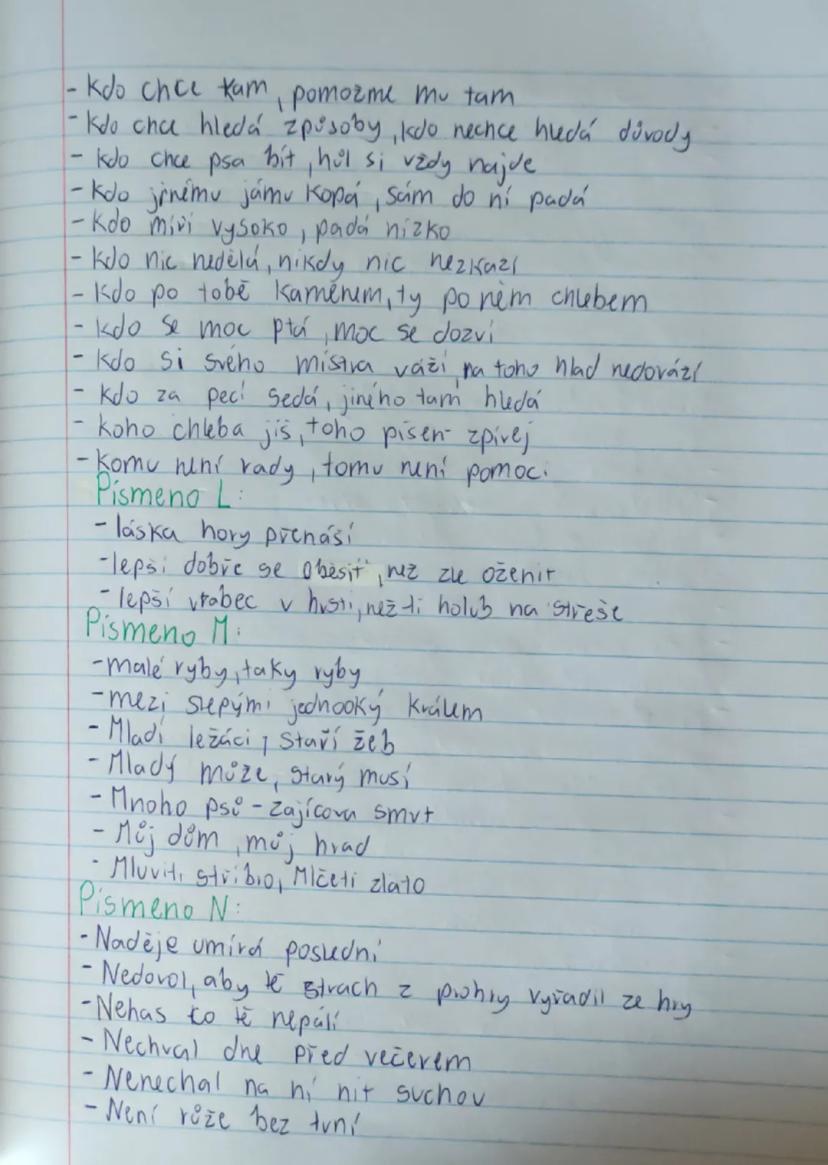 - Kdo chce kam, pomozme mu tam
- Kdo chce hledá způsoby, kdo nechce hledá důvody
- kdo chce psa bít, hůl si vždy najde
- Kdo jinému jámu kopá, sám do ní padá
- Kdo míří vysoko, padá nízko
- Kdo nic nedělá, nikdy nic nezkazí
- Kdo po tobě kamenem, ty po něm chlebem
- kdo se moc ptá, moc se dozví
- Kdo si svého mistra váží, na toho hlad nedorází
- Kdo za pecí sedá, jiného tam hledá
- koho chleba jíš, toho píseň zpívej
- Komu není rady, tomu není pomoci
Písmeno L:
- láska hory přenáší
- lepší dobře se oběsit, než zle oženit
- lepší vrabec v hrsti, než ti holub na střeše
Písmeno M:
- malé ryby, taky ryby
- mezi slepými jednooký králem
- Mladí ležáci, Staří žeb
- Mladý může, starý musí
- Mnoho psů - zajícova smrt
- Můj dům, můj hrad
- Mluviti stříbro, Mlčeti zlato
Písmeno N:
- Naděje umírá poslední
- Nedovol, aby tě strach z prohry vyřadil ze hry
- Nehas co tě nepálí
- Nechval dne před večerem
- Nenechal na ní nit suchou
- Není růže bez trní